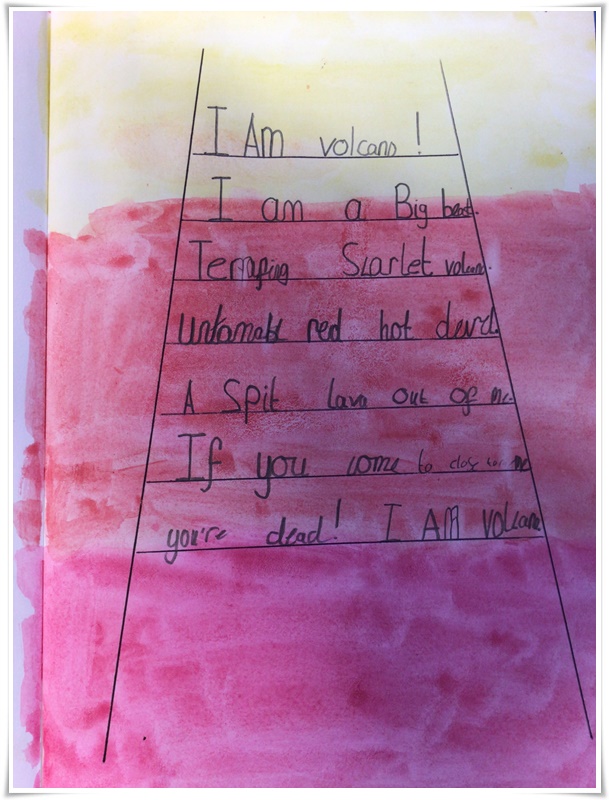 I Am volcano!
I am a Big beast.
Terrafing Scarlet volcano.
red hot
A Spit lava out of me.
If you come to close to me
you're dead! I AM volcano